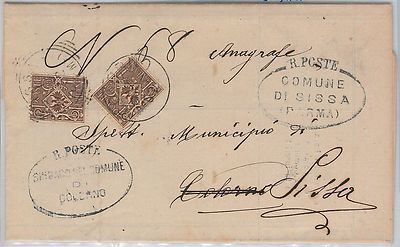 N 68 Anagrafe
R. POSTE
COMUNE
DI SISSA
(PARMA)
Spett. Municipio
di
R. POSTE
SINDACO DEL COMUNE
DI
COLORNO
Colorno Sissa